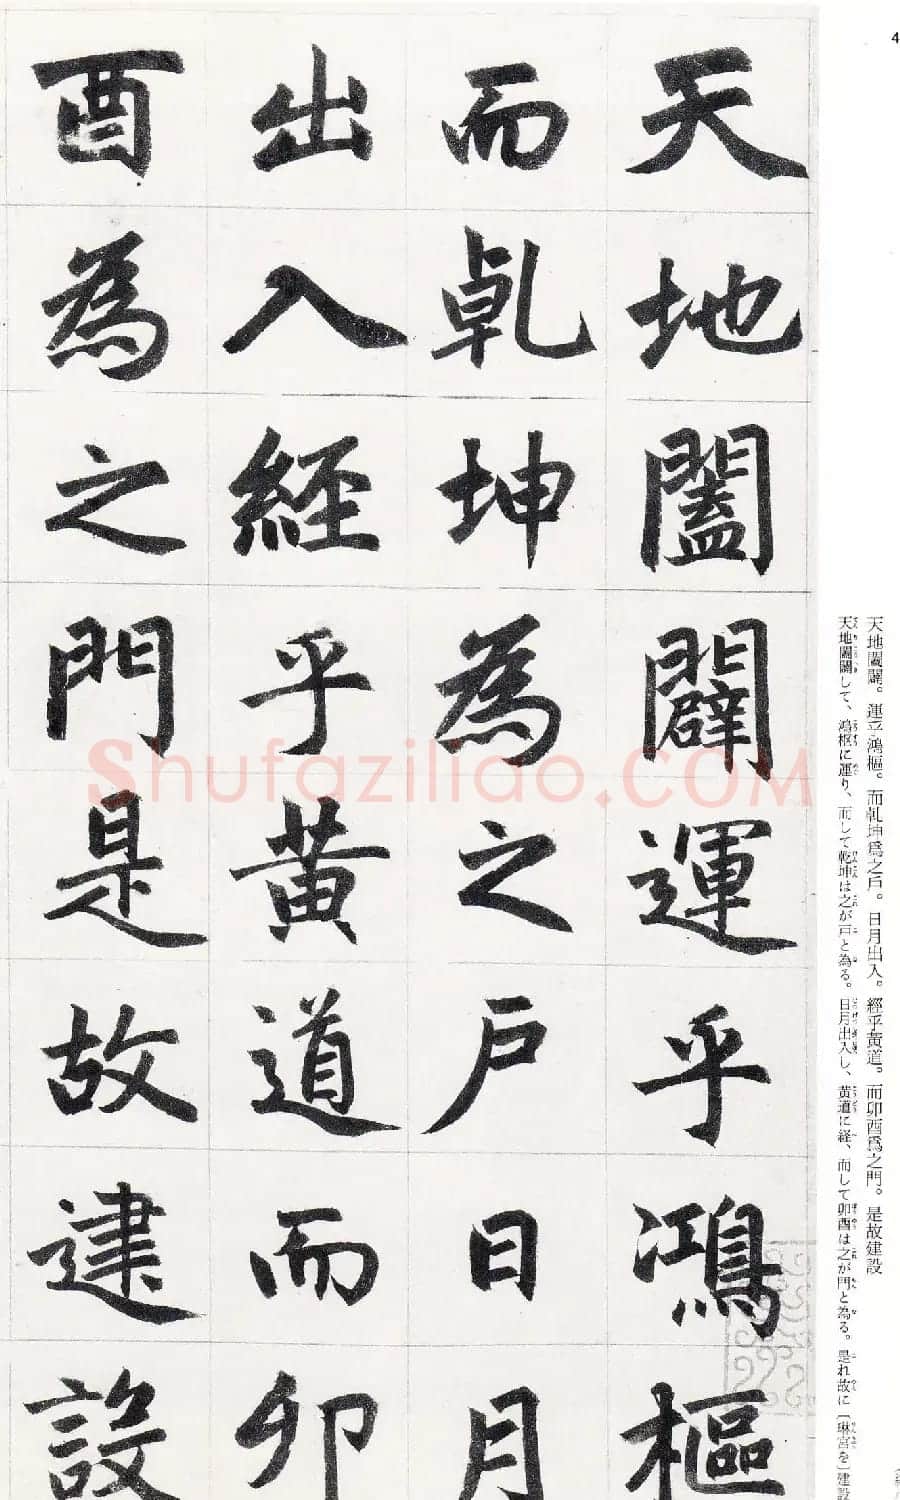 4
天地闔闢運乎鴻樞
而乹坤為之戶日月
出入經乎黃道而卯
酉為之門是故建設
天地闔闢。運乎鴻樞。而乹坤爲之戶。日月出入。經乎黃道。而卯酉爲之門。是故建設
天地闔闢して、鴻枢に運り、而して乾坤は之が戸と為る。日月出入し、黄道に経、而して卯酉は之が門と為る。是れ故に〔琳宮を〕建設
Shufaziliao.COM